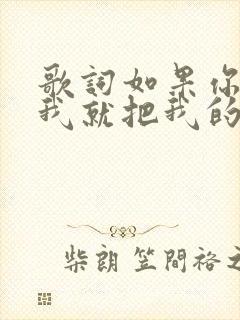 歌詞如果你
我就把我的
柴朗 笠間裕之